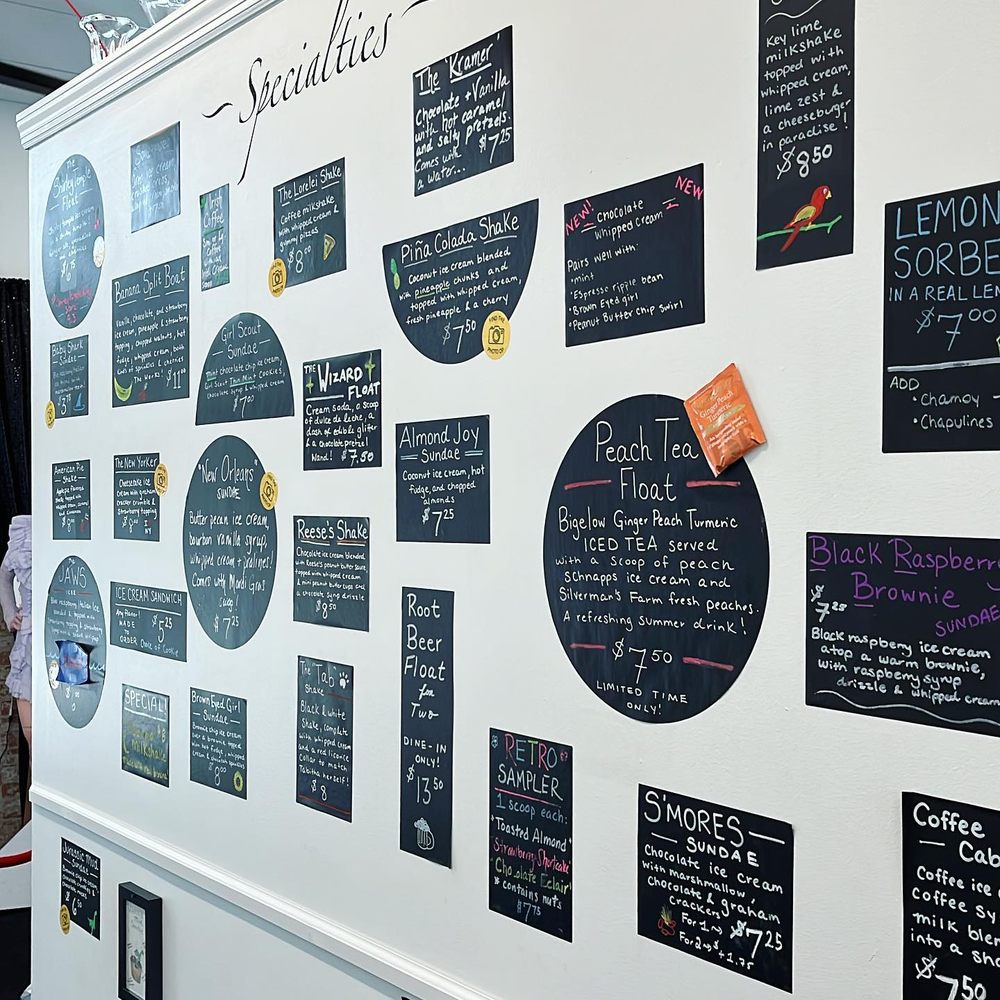 Specialties
The 'Kramer'
Chocolate + Vanilla
with hot caramel
and salty pretzels.
Comes with
a water...
$7.25
Key lime
milkshake
topped with
whipped cream,
lime zest &
a cheeseburger
in paradise!
$8.50
The
Float
Irish
Coffee
The Lorelei Shake
Coffee milkshake
with whipped cream &
gummy pizzas
$8.50
Piña Colada Shake
Coconut ice cream blended
with pineapple chunks and
topped with whipped cream,
fresh pineapple & a cherry
$7.50
NEW! Chocolate NEW
Whipped Cream
Pairs well with:
•mint
•Espresso ripple bean
•Brown Eyed girl
•Peanut Butter Chip Swirl
LEMON
SORBE
IN A REAL LEM
$7.00
ADD
•Chamoy
•Chapulines
Banana Split Boat
Vanilla, chocolate and strawberry
ice cream, pineapple & strawberry
The Works! $11.00
Girl Scout
Sundae
Mint chocolate chip ice cream,
Girl Scout Thin Mint Cookies,
chocolate syrup & whipped cream
$7.00
Baby Shark
Sundae
THE WIZARD
FLOAT
Cream soda, a scoop
of dulce de leche, a
dash of edible glitter
& a chocolate pretzel
Wand! $7.50
Almond Joy
Sundae
Coconut ice cream, hot
fudge, and chopped
almonds
$7.25
Ginger Peach
Turmeric
Peach Tea
Float
Bigelow Ginger Peach Turmeric
ICED TEA served
with a scoop of peach
schnapps ice cream and
Silverman's Farm fresh peaches.
A refreshing summer drink!
$7.50
LIMITED TIME
ONLY!
American Pie
Shake
The New Yorker
Cheesecake ice
cream with graham
cracker crumble &
strawberry topping
"New Orleans"
SUNDAE
Butter pecan ice cream,
bourbon vanilla syrup,
whipped cream + pralines!
Comes with Mardi Gras
swag!
$7.25
Reese's Shake
Chocolate ice cream blended
with Reese's peanut butter sauce,
topped with whipped cream
& mini peanut butter cups and
a chocolate syrup drizzle
$9.50
Black Raspberry
Brownie
SUNDAE
$7.25
Black raspberry ice cream
atop a warm brownie,
with raspberry syrup
drizzle & whipped cream
The
JAWS
ICEE
ICE CREAM SANDWICH
Any Flavor!
MADE
TO
ORDER
$5.25
Choice of Cookie
Root
Beer
Float
for
Two
DINE-IN
ONLY!
$13.50
SPECIAL!
Brown Eyed Girl
Sundae
The "Tab"
Shake
Black & white
Shake, complete
with whipped cream
and a red licorice
Collar to match
Tabitha herself!
$8
RETRO
SAMPLER
1 scoop each:
*Toasted Almond*
*Strawberry Shortcake*
*Chocolate Eclair*
* contains nuts
$7.75
S'MORES
SUNDAE
Chocolate ice cream
with marshmallow,
chocolate & graham
crackers
For 1→ $7.25
For 2→ $+1.75
Coffee
Cab
Coffee ice
coffee sy
milk blen
into a sha
$7.50
Jurassic Mud
Sundae